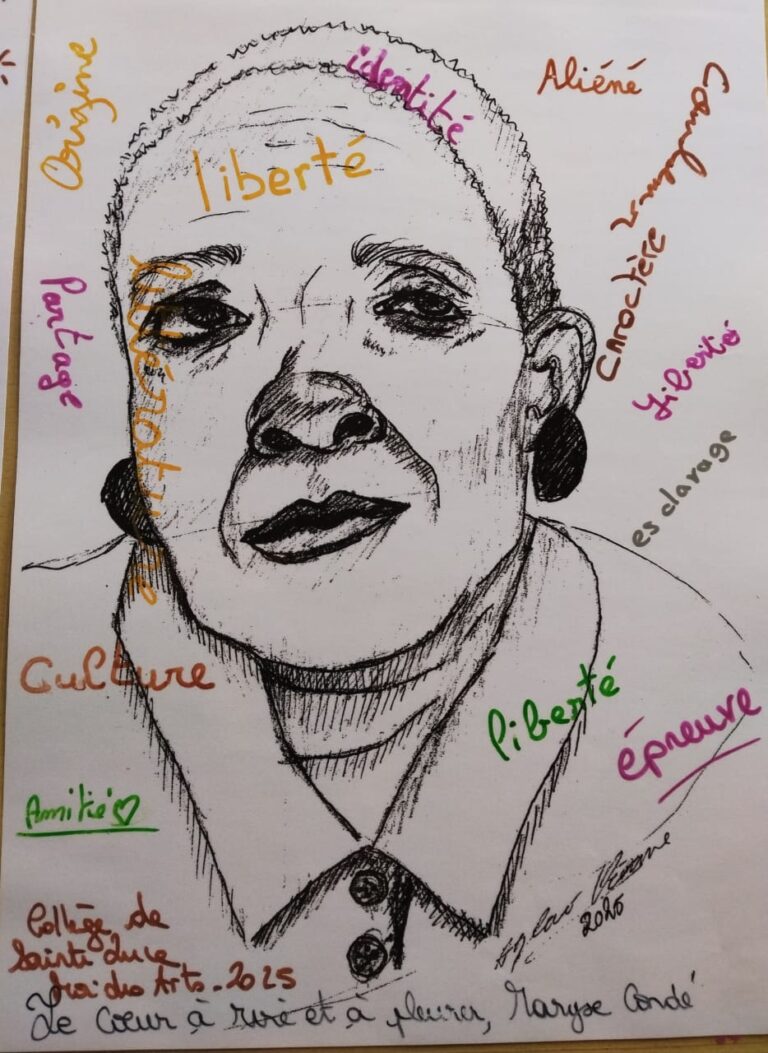 Origine
identité
Aliéné
liberté
Couleur
Caractère
Partage
littérature
liberté
esclavage
Culture
liberté
épreuve
Amitié
2025
Collège de
Sainte Luce
Mai des Arts - 2025
Le Coeur à rire et à pleurer, Maryse Condé